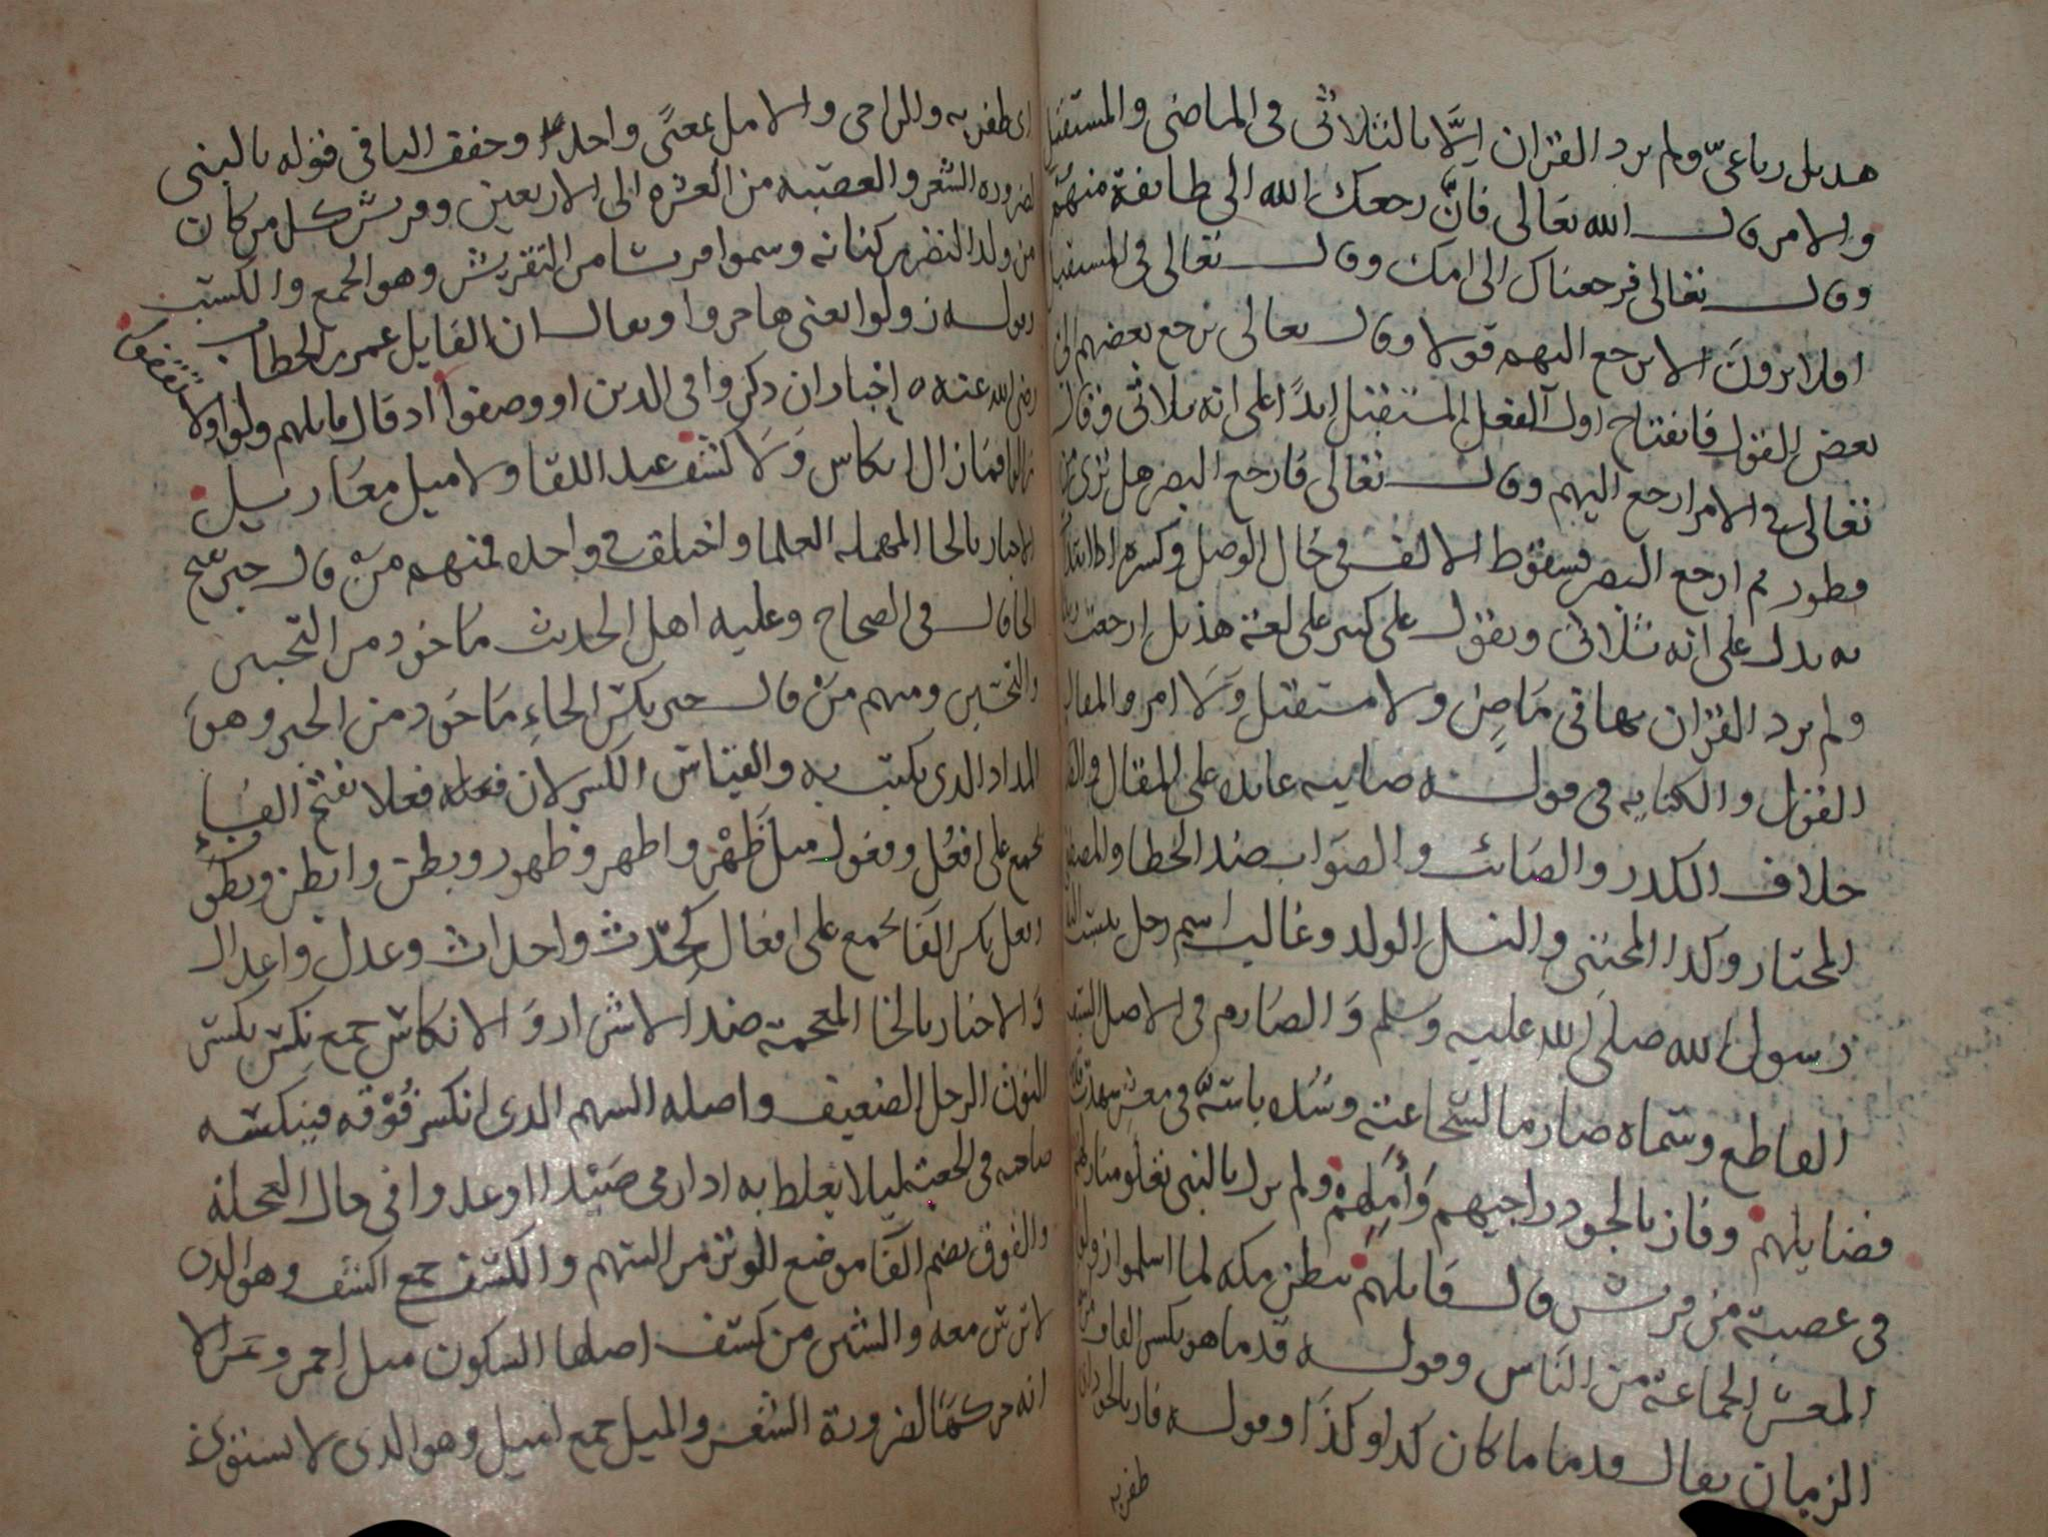 هديل رباعيّ ولم يرد القران اِلّا بالثلاثى فى الماضى والمستقبل
والامر قال الله تعالى فانّ رجعك الله الى طايفة منهم
وقال تعالى فرجعناك الى امك وقال تعالى فى المستقبل
افلا يرونَ الا يرجع اليهم قولا وقال تعالى يرجع بعضهم الى
بعض القول فانفتاح اول الفعل المستقبل ابدًا على انه ثلاثى وقال
تعالى فى الامر ارجع اليهم وقال تعالى فارجع البصر هل ترى من
فطور ثم ارجع البصر فسقوط الالف فى حَال الوصل وكسره اذا ابتدا
به يدل على انه ثلاثى ويقول على كسر على لغة هذيل ارجعت
ولم يرد القران بها فى مَاضٍ ولا مستقبل وَلَا امر والمقال
القول والكنايه فى قوله صايبه عايد على المقال
خلاف الكدر والصَائب والصَواب ضد الخطا والمصفى
المختار وكدا المجتبى والنسل الولد وغالب اسم رجل
رَسول الله صلى الله عليه وسَلم وَالصَارم فى الاصل السيف
القاطع وسَماه صَارما لشجاعته وشدة باسه فى معشر
فضايلهم وفاز بالجود راجيهم وَآمِلهم ولم يزل بالنبى
فى عصبة من قريش قال قايلهم ببطن مكه لما اسلموا زولوا
المعشر الجماعة من الناس وقوله قدما هو بكسر القاف
الزمان يقال قدما ما كان كدا وكذَا وقوله فاز بالجود اى
ظفر به
اى ظفر به والراجى والامل بمعنًى واحد وخفف الباقى قوله بالنبى
لضروره الشعر والعصبه من العشره الى الاربعين وقريش كل من كان
من ولد النضر بن كنانه وسموا قريشا من التقريش وهو الجمع والكسب
وقوله زولوا يعنى هاجروا ويعال ان القايل عمر بن الخطاب
رضى الله عنه اخبار ان ذكروا فى الدين او وصفوا اد قال قايلهم
زالوا فمَا زال انكاس وَلَا كشف عند اللقا ولا ميل معَازيل
الاحبار بالحا المهمله العلما واختلف فى واحده فمنهم مَنْ قال حبر بفتح
الحا قال فى الصحاح وعليه اهل الحديث مَاخود من التحبير
والتحسين ومنهم مَنْ قال حبر بكسر الحاءِ مَاخود من الحبر وهوَ
المداد الدى يكتب به والقياس الكسر لان فعله فعلا بفتح الفَاء
يجمع على افعُل وفعول مثل ظَهْر واظهر وظهور وبطن وابطن وبطون
وفعل بكسر الفَا يجمع على افعَال كحِدْث واحداث وعدل واعدال
وَالاخيار بالخا المعجمة ضد الاشرار وَالانكاس جمع نِكس بكسر
النون الرجل الضعيف واصله السهم الدى انكسر فُوْقه فينكسه
صاحبه فى الجعبة ليلا يغلط به ادا رمى صَيْدا او عدوا فى حال العجلة
والفوق بضم الفَا موضع الوتر من السَهم والكشف جمع اكشف وهو الدى
لا ترس معه والشين من كشف اصلها السكون مثل احمر وحمر الا
انه حركهَا لضرورة الشعر والميل جمع اميل وهو الدى لا يستوى